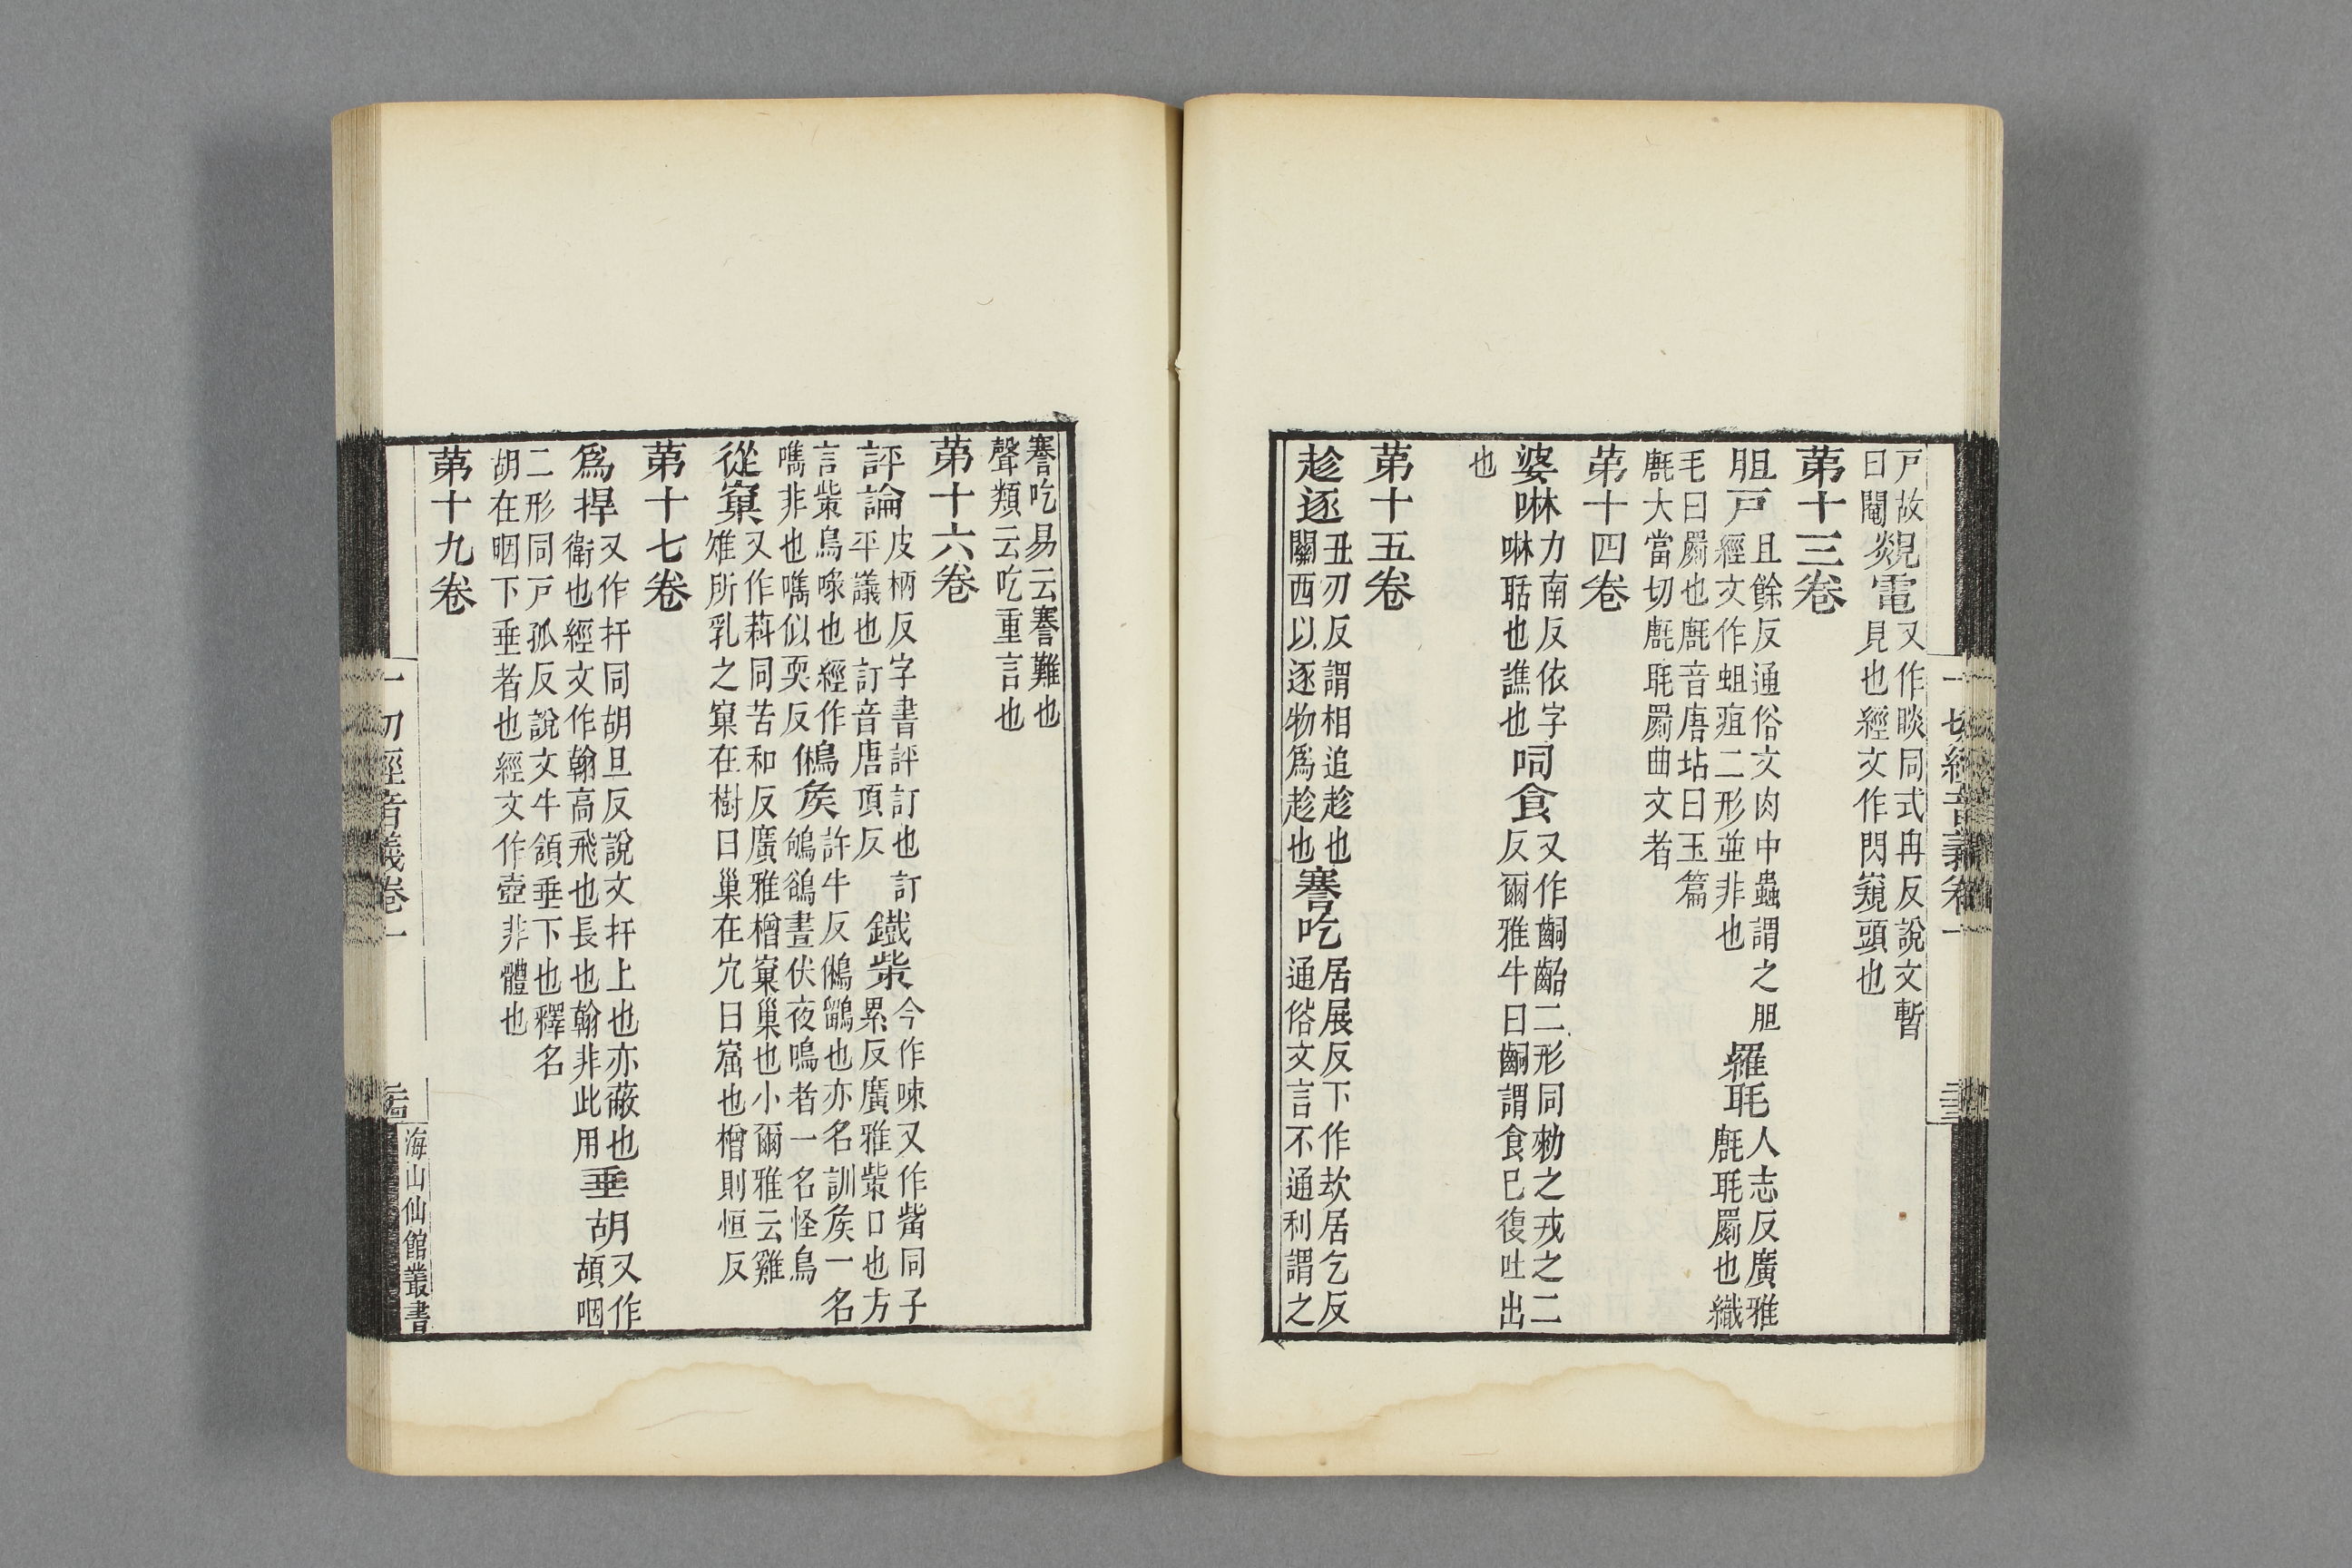 戸故
曰閹覢電又作睒同式冉反說文暫
見也經文作閃窺頭也
第十三卷
胆戸且餘反通俗文肉中蟲謂之胆
經文作蛆疽二形並非也
羅毦人志反廣雅
氀毦罽也織
毛曰罽也氀音唐坫曰玉篇
氀大當切氀毦罽曲文者
第十四卷
婆啉力南反依字
啉聒也譙也
呞食又作齝齛二形同勑之戎之二
反爾雅牛曰齝謂食已復吐出
也
第十五卷
趁逐丑刃反謂相追趁也
關西以逐物爲趁也
謇吃居展反下作欬居乞反
通俗文言不通利謂之
謇吃易云謇難也
聲類云吃重言也
第十六卷
評論皮柄反字書評訂也訂
平議也訂音唐頂反
鐵㭰今作㖨又作觜同子
累反廣雅㭰口也方
言㭰鳥喙也經作
噣非也噣似耎反
鵂矦許牛反鵂鶹也亦名訓矦一名
鴝鵒晝伏夜鳴者一名怪鳥
從窠又作萪同苦和反廣雅橧窠巢也小爾雅云雞
雉所乳之窠在樹曰巢在穴曰窟也橧則恒反
第十七卷
爲捍又作扞同胡旦反說文扞上也亦蔽也
衛也經文作翰高飛也長也翰非此用
垂胡又作
頡咽
二形同戸孤反說文牛頷垂下也釋名
胡在咽下垂者也經文作壺非體也
第十九卷
一切經音義卷一
海山仙館叢書